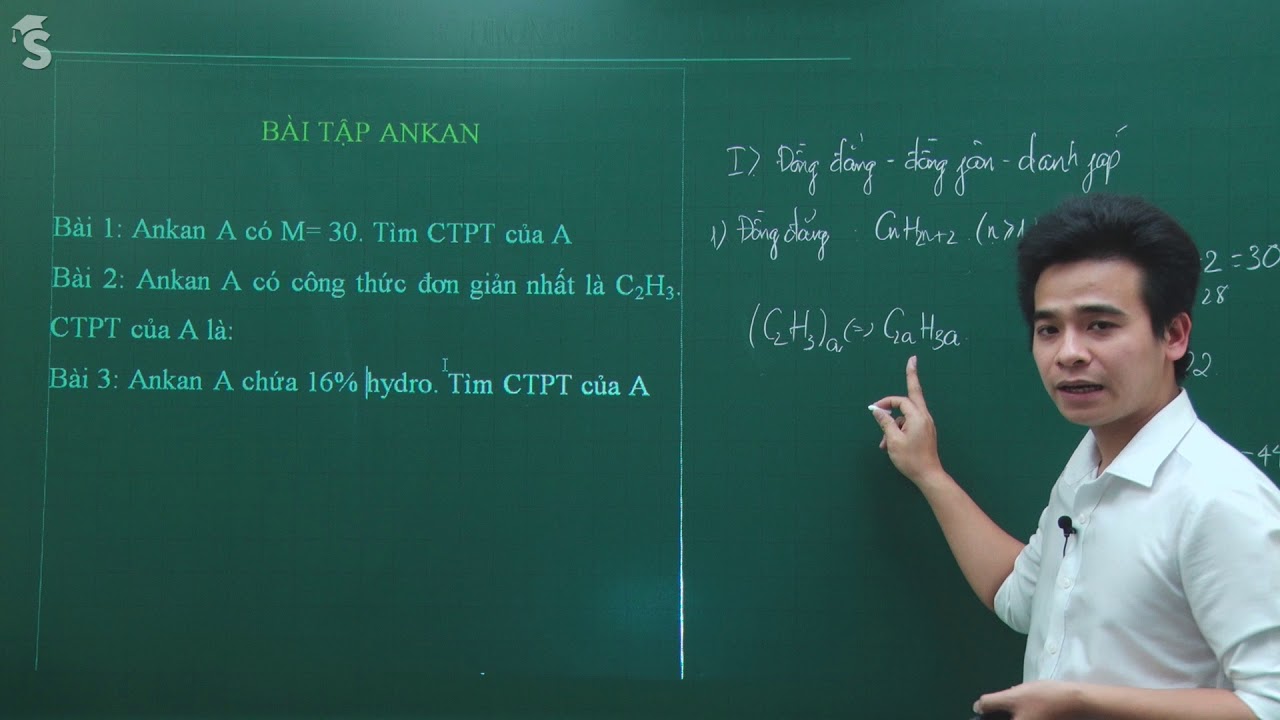 S
BÀI TẬP ANKAN
Bài 1: Ankan A có M= 30. Tìm CTPT của A
Bài 2: Ankan A có công thức đơn giản nhất là C₂H₃.
CTPT của A là:
Bài 3: Ankan A chứa 16% hydro. Tìm CTPT của A
I> Đồng đẳng - đồng phân - danh pháp
1) Đồng đẳng : CnH2n+2 (n≥1
(C₂H₃)a => C2aH3a
2 = 30
28
22
=44